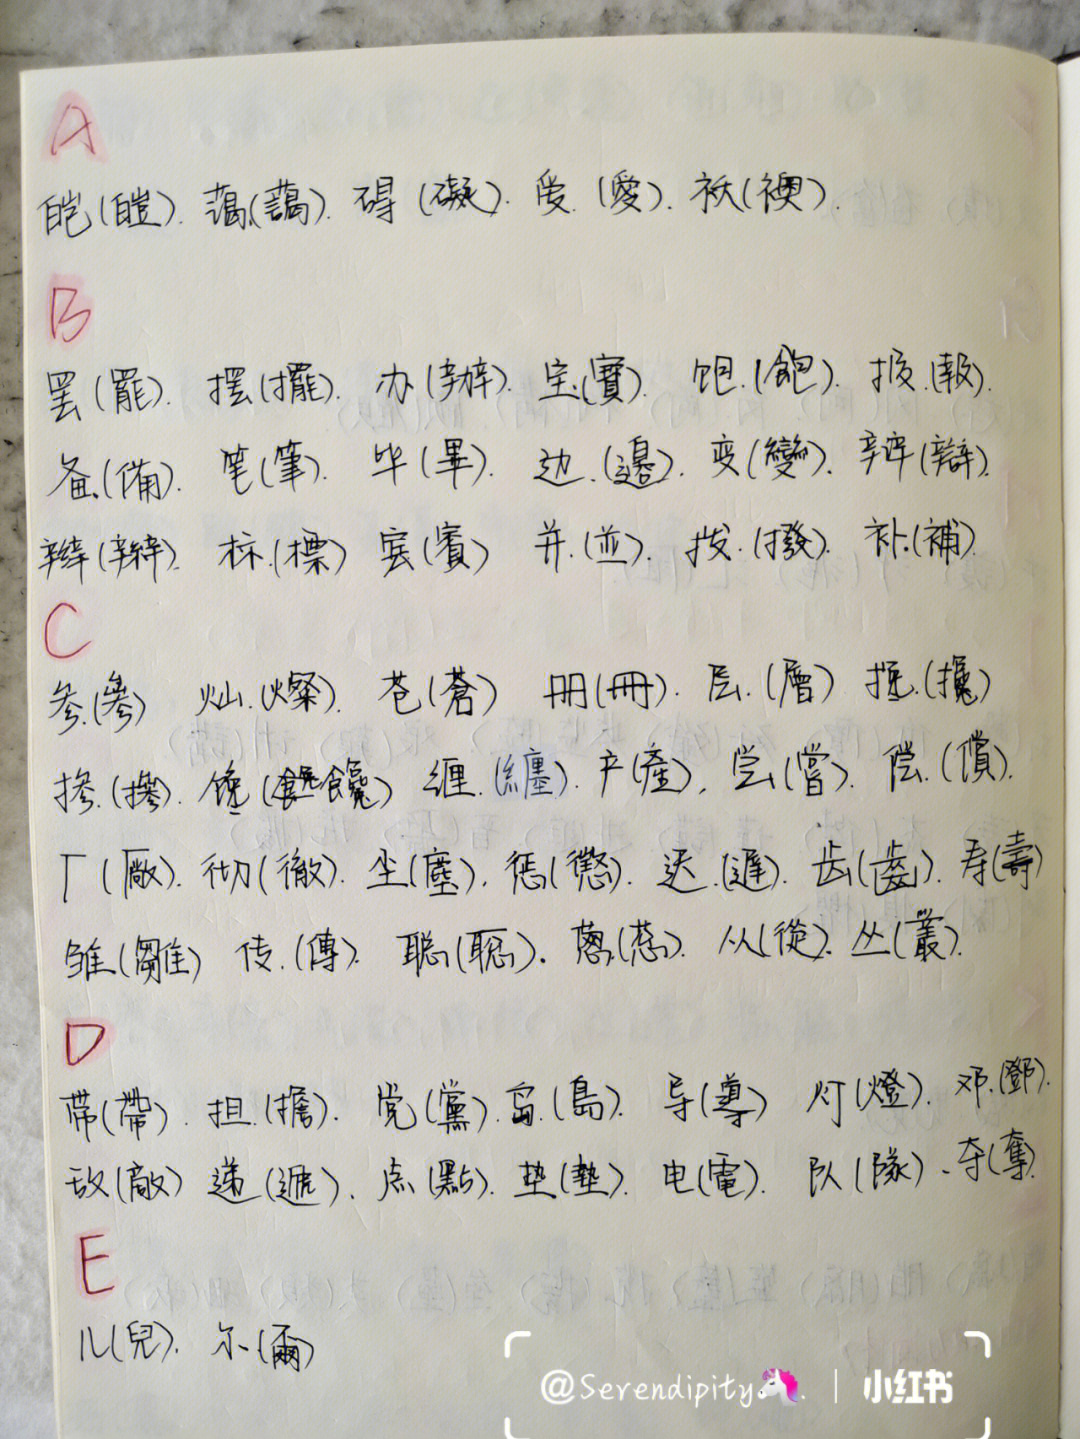 A
皑(皚). 蔼(藹). 碍(礙). 爱(愛). 袄(襖).
B
罢(罷). 摆(擺). 办(辦). 宝.(寶). 饱.(飽). 报.(報).
备.(備). 笔(筆). 毕(畢). 边.(邊). 变(變). 辩(辯).
辫(辮). 标.(標) 宾(賓) 并.(並). 拨.(撥). 补.(補).
C
参.(參) 灿.(燦). 苍(蒼) 册(冊). 层.(層) 搀.(攙)
掺.(摻). 馋(饞) 缠.(纏). 产(產). 尝(嘗). 偿.(償).
厂(廠). 彻(徹). 尘(塵). 惩(懲). 迟.(遲). 齿(齒). 寿(壽)
雏(雛) 传.(傳). 聪(聰). 葱.(蔥). 从(從). 丛(叢).
D
带(帶). 担.(擔). 党(黨). 岛.(島). 导(導) 灯(燈). 邓.(鄧).
敌(敵) 递(遞). 点(點). 垫(墊). 电(電). 队(隊). 夺(奪).
E
儿(兒). 尔.(爾)
@Serendipity🦄. | 小红书